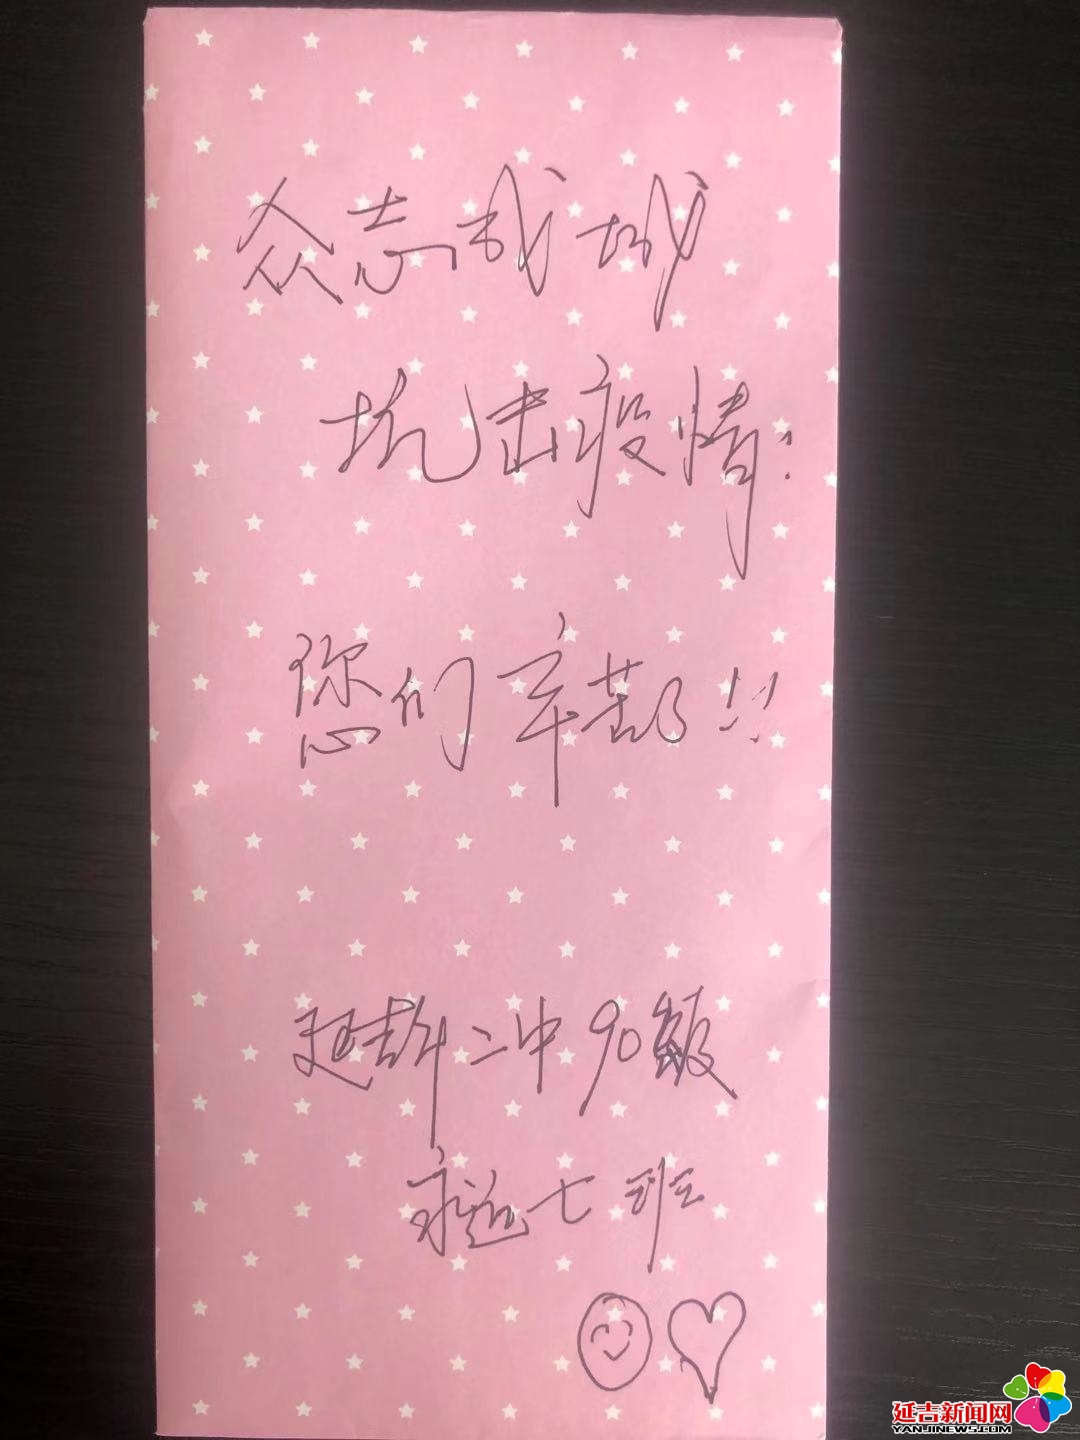 众志成城
坑击疫情!
您们辛苦了!!
延吉市二中90级
永远七班
延吉新闻网
YANJINEWS.COM